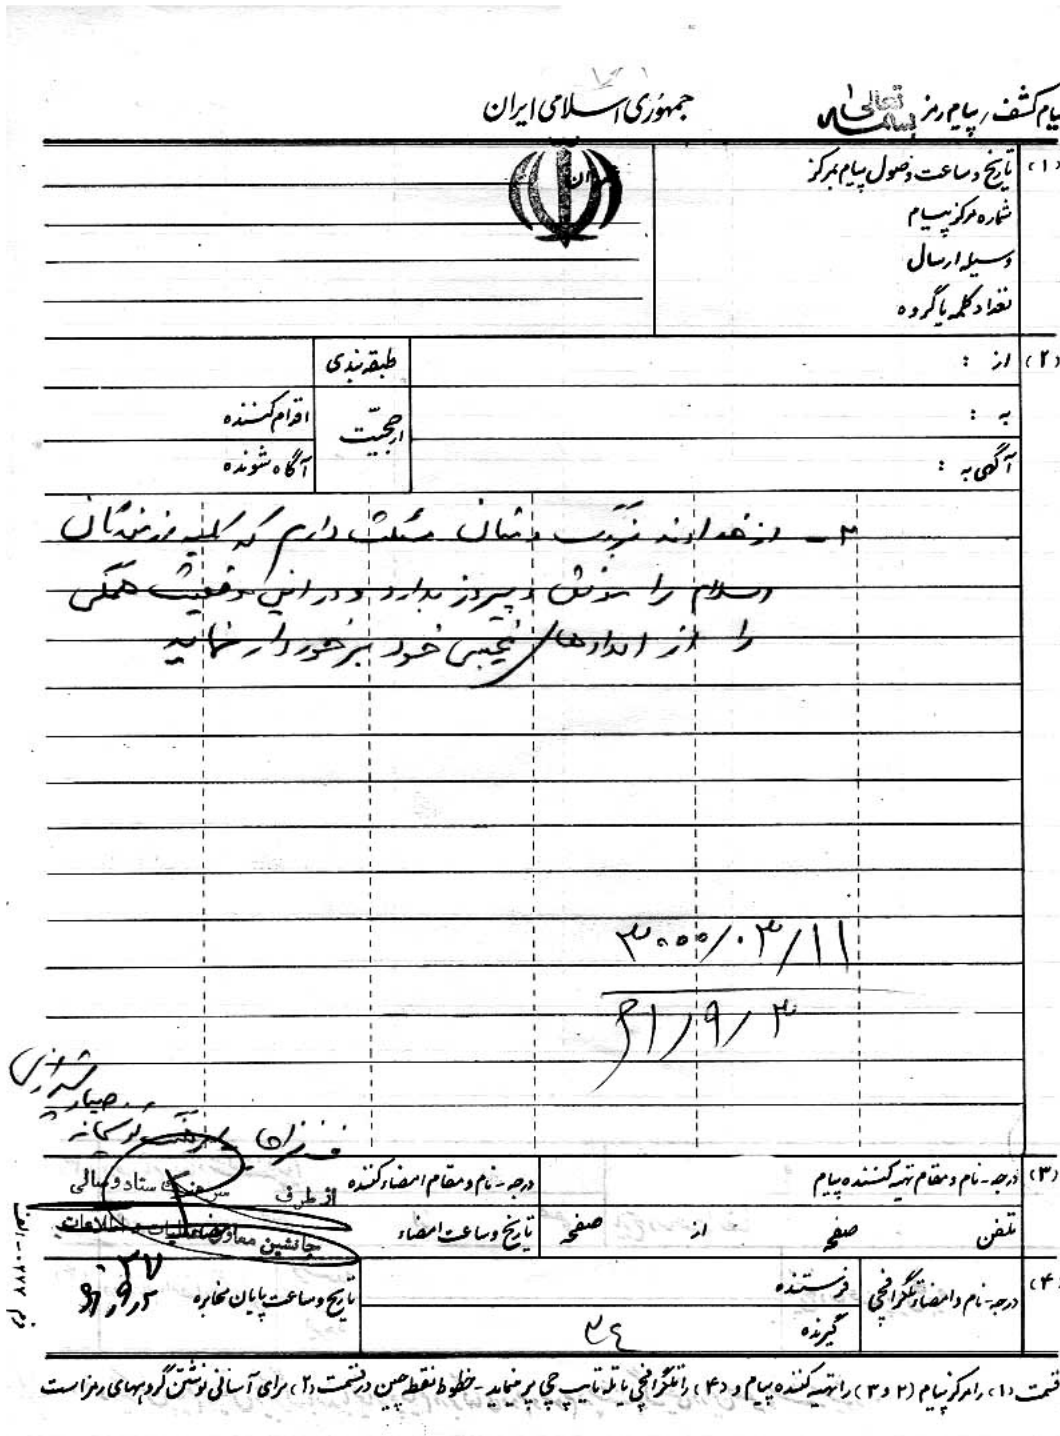 پیام کشف / پیام رمز
بسمه تعالی
جمهوری اسلامی ایران
(۱) تاریخ و ساعت وصول پیام بمرکز
شماره مرکز پیام
وسیله ارسال
تعداد کلمه یا گروه
(۲) از :
طبقه‌بندی
به :
ارجحیت
اقدام کننده
آگهی به :
آگاه شونده
۳- از خداوند بزرگ و منان مسئلت دارم که کلیه رزمندگان
اسلام را موفق و پیروز بدارد و در این موقعیت همگی
را از امدادهای غیبی خود برخوردار نماید
۳۰۰۰/۰۳/۱۱
۶۱/۹/۳
صیاد شیرازی
(۳) درجه - نام و مقام تهیه کننده پیام
درجه - نام و مقام امضاء کننده
از طرف
سرهنگ ستاد
جانشین معاون عملیات و اطلاعات
تلفن
صفحه
از
صفحه
تاریخ و ساعت امضاء
(۴) درجه - نام و امضاء تلگرافچی
فرستنده
گیرنده
۳۶
تاریخ و ساعت پایان مخابره
قسمت (۱) را مرکز پیام (۲ و ۳) را تهیه کننده پیام و (۴) را تلگرافچی یا تله تایپ چی پر مینماید - خطوط نقطه چین در قسمت (۲) برای آسانی نوشتن گروههای رمز است